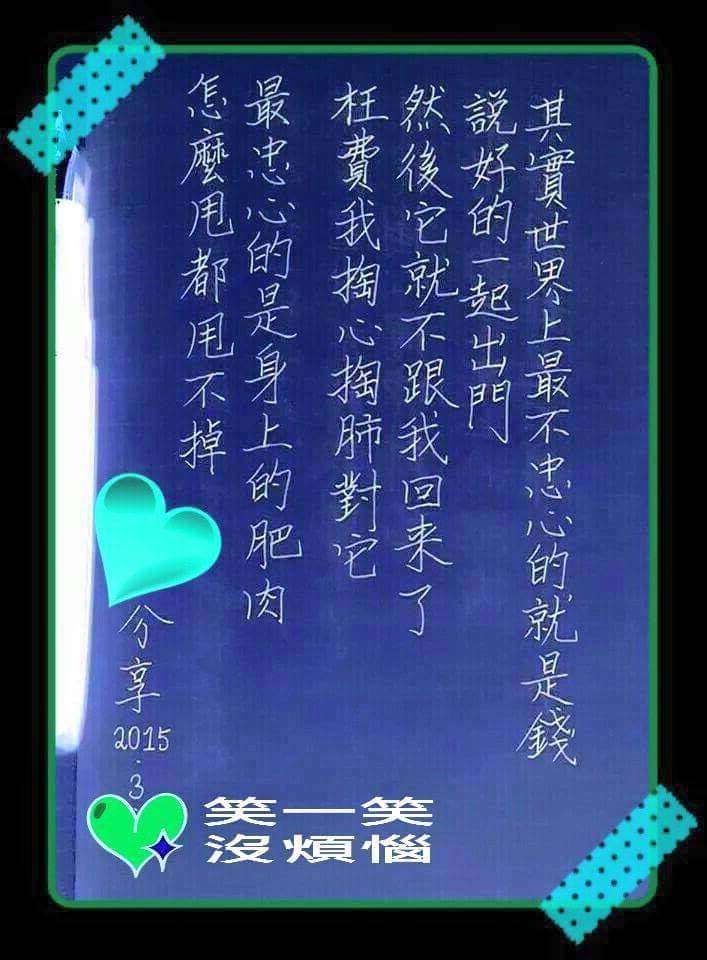 其實世界上最不忠心的就是錢
說好的一起出門
然後它就不跟我回来了
枉費我掏心掏肺對它
最忠心的是身上的肥肉
怎麼甩都甩不掉
分享2015.3
笑一笑
沒煩惱